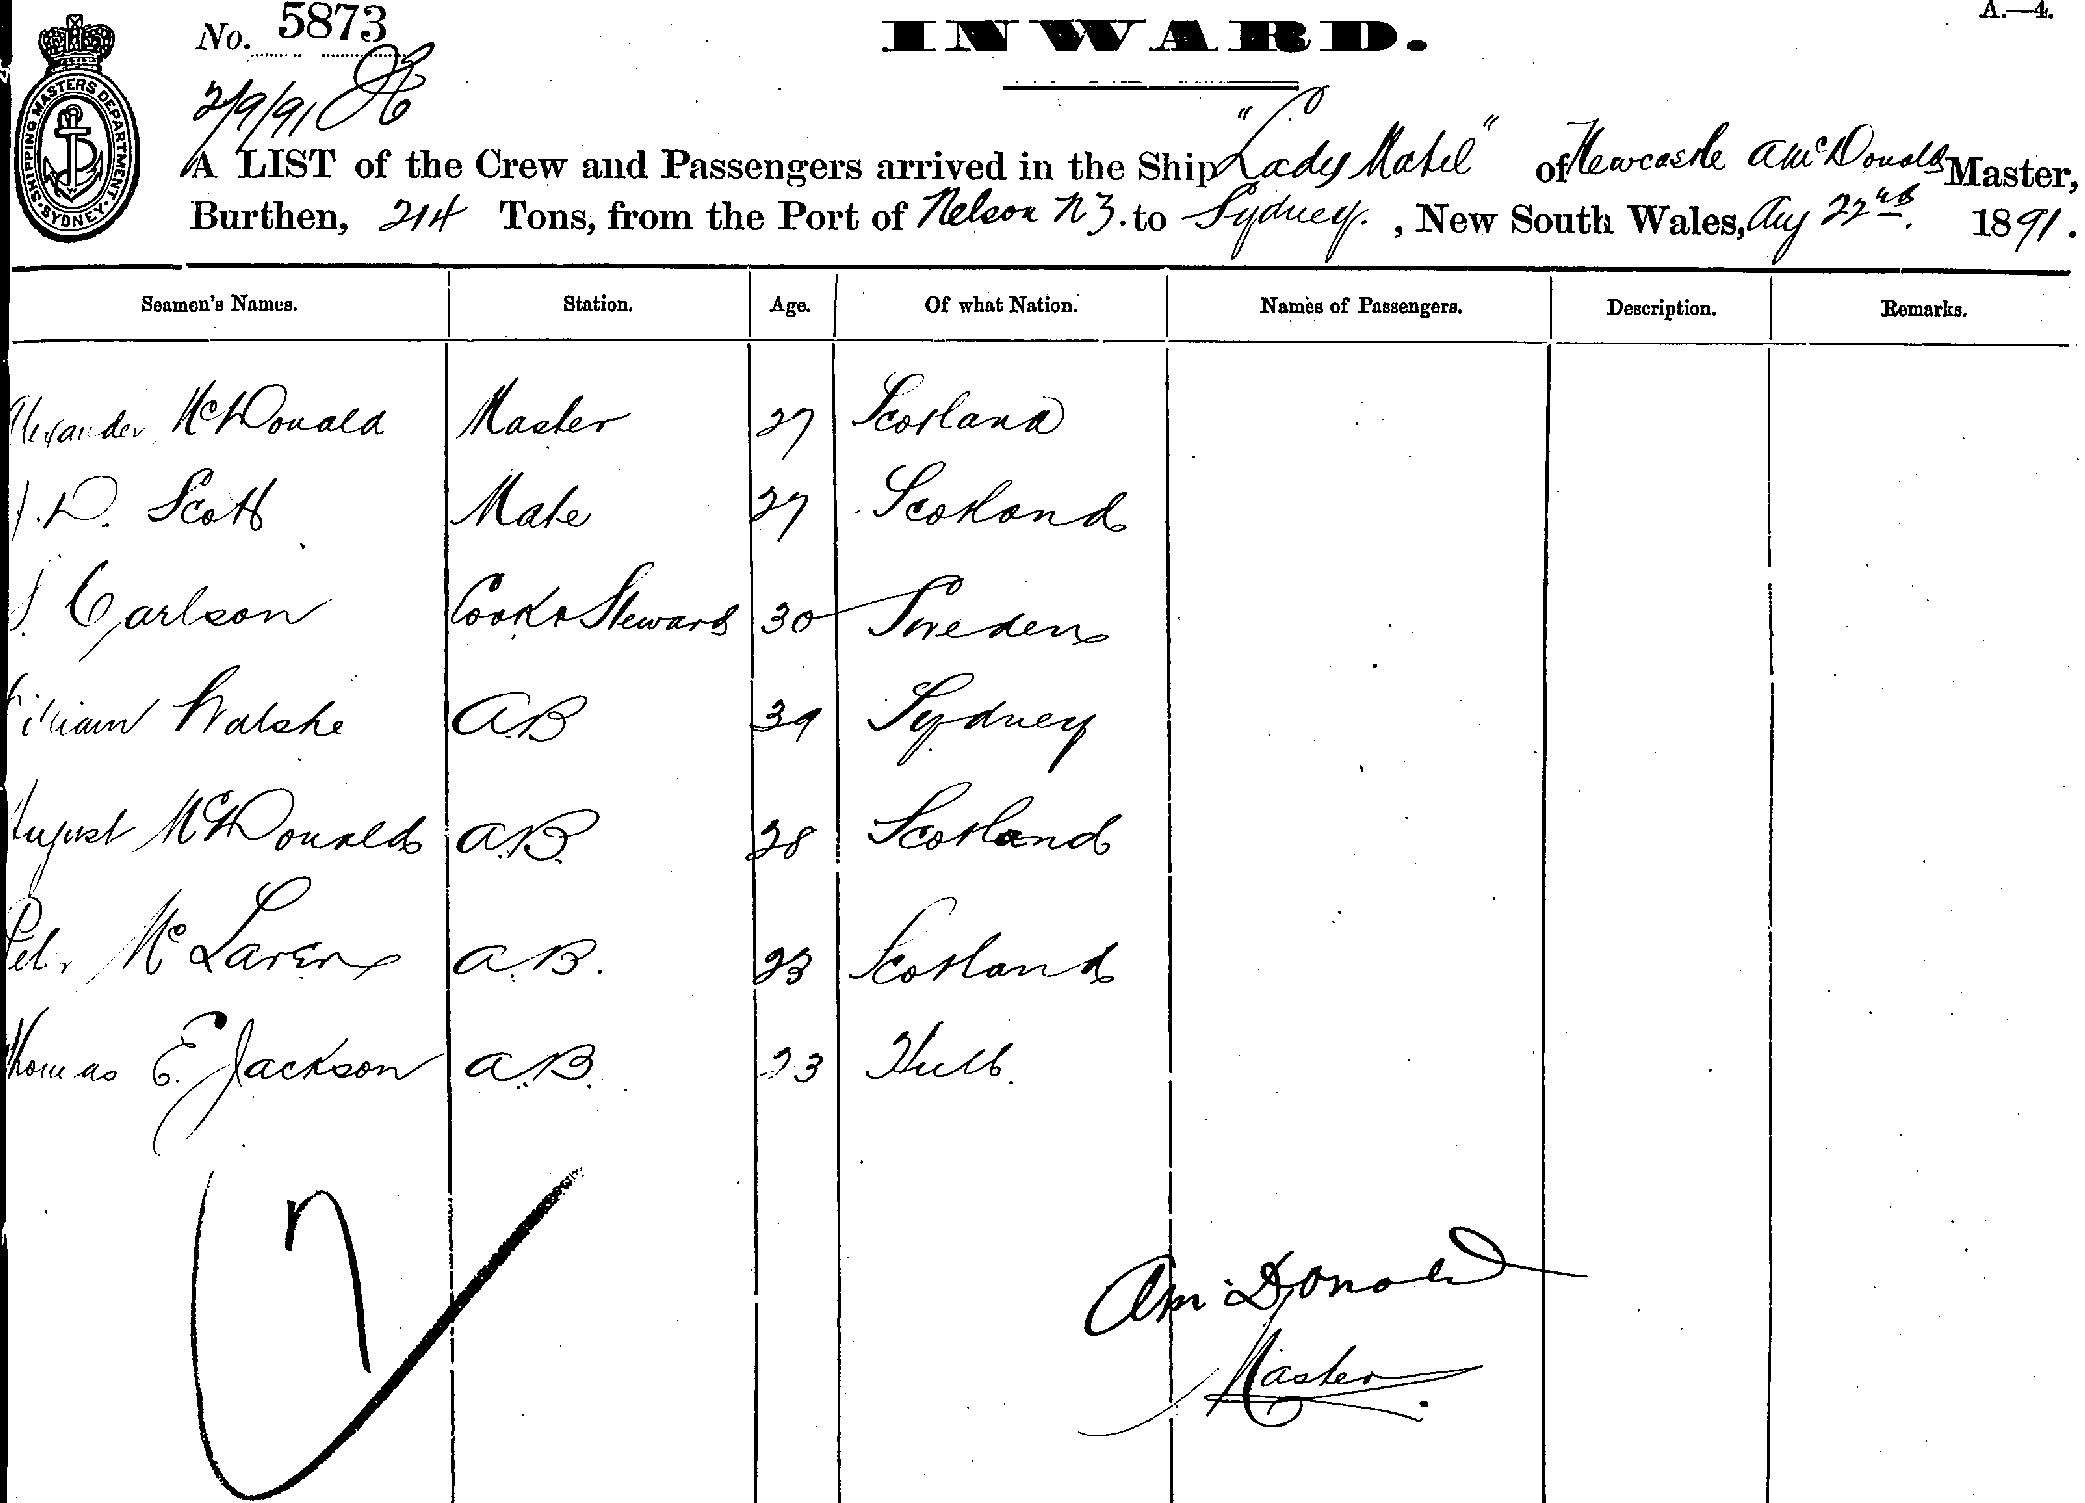 A.—4.
No. 5873
INWARD.
2/9/91
SHIPPING MASTERS DEPARTMENT SYDNEY
A LIST of the Crew and Passengers arrived in the Ship "Lady Mabel" of Newcastle A McDonald Master,
Burthen, 214 Tons, from the Port of Nelson N Z. to Sydney. , New South Wales, Aug 22nd. 1891.
Seamen's Names. Station. Age. Of what Nation. Names of Passengers. Description. Remarks.
Alexander McDonald Master 27 Scotland
J. D. Scott Mate 27 Scotland
Carlson Cook & Steward 30 Sweden
William Walshe A.B 39 Sydney
August McDonald A.B. 28 Scotland
Peter McLaren A.B. 23 Scotland
Thomas E. Jackson A.B. 23 Hull.
7
A McDonald
Master